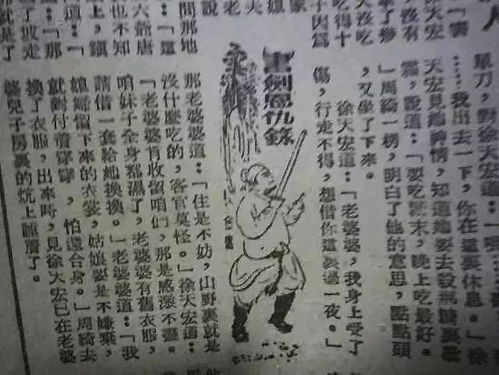 徐天宏
沒有
天沒吃
吃得十
子因為
單刀,對徐天宏道:「
……我出去一下,你在這裏休息。」徐
天宏見她神情,知道她要去殺
霜,說道:「要吃 末,晚上吃最好。
」周綺一楞,明白了他的意思,點點頭
,又坐了下來。
徐天宏道:「老婆婆,我身上受了
傷,行走不得,想借你這裏過一夜。」
書劍恩仇錄
說
問那地
:「這
六爺唐
也不知
上,鎮
「那
了放走
就是了
那老婆婆道:「住是不妨,山野裏就是
沒什麼吃的,客官莫怪。」徐天宏道:
「老婆婆肯收留咱們,那是感激不盡。
咱妹子全身都濕了,老婆婆有舊衣服,
請借一套給她換換。」老婆婆道:「我
媳婦留下來的衣裳,姑娘要是不嫌棄,
就對付着穿穿,怕還合身。」周綺去
換了衣服,出來時,見徐天宏已在老婆
婆兒子房裏的炕上睡着了。